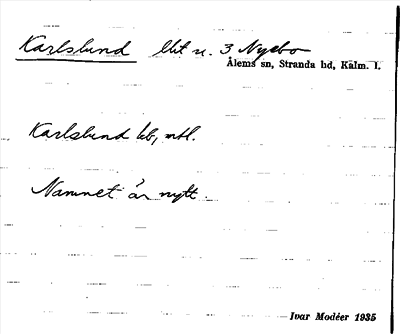 Karlslund Utt u. 3 Nyebo
Ålems sn, Stranda hd, Kalm. l.
Karlslund lb, mtl.
Namnet är nytt.
Ivar Modéer 1935